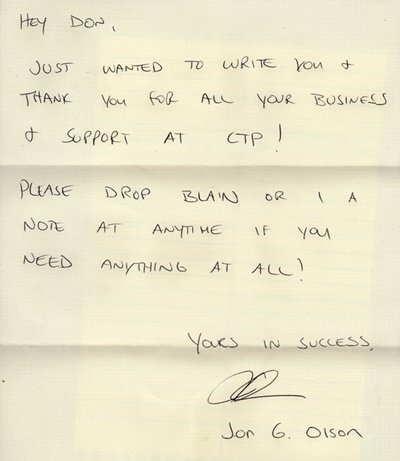 HEY DON,
JUST WANTED TO WRITE YOU &
THANK YOU FOR ALL YOUR BUSINESS
& SUPPORT AT CTP!
PLEASE DROP BLAIN OR I A
NOTE AT ANYTIME IF YOU
NEED ANYTHING AT ALL!
YOURS IN SUCCESS,
Jon G. Olson